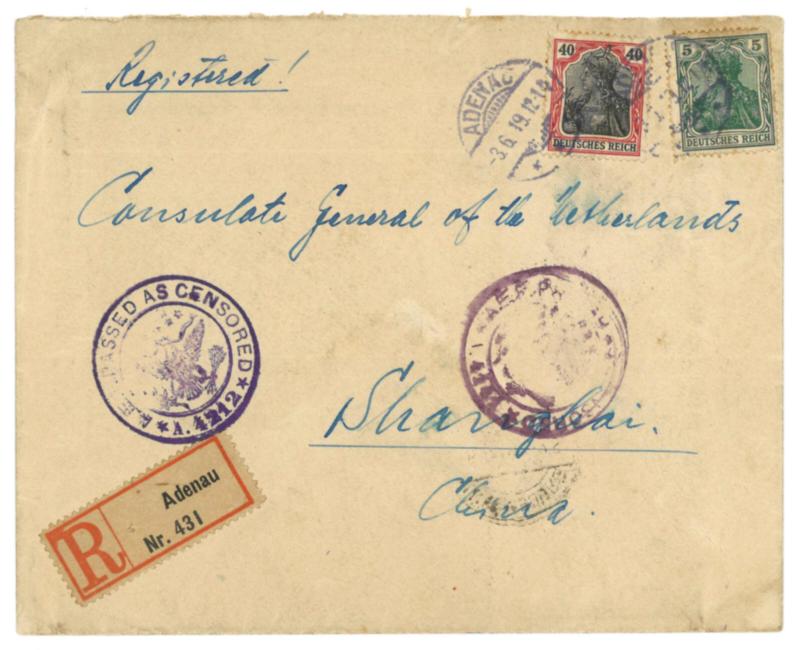 Registered!
ADENAU
-3.6.19.12-1
40 40
DEUTSCHES REICH
5 5
DEUTSCHES REICH
Consulate General of the Netherlands
PASSED AS CENSORED
★ A. 4212 ★
A.E.F.
Shanghai.
China.
R
Adenau
Nr. 431